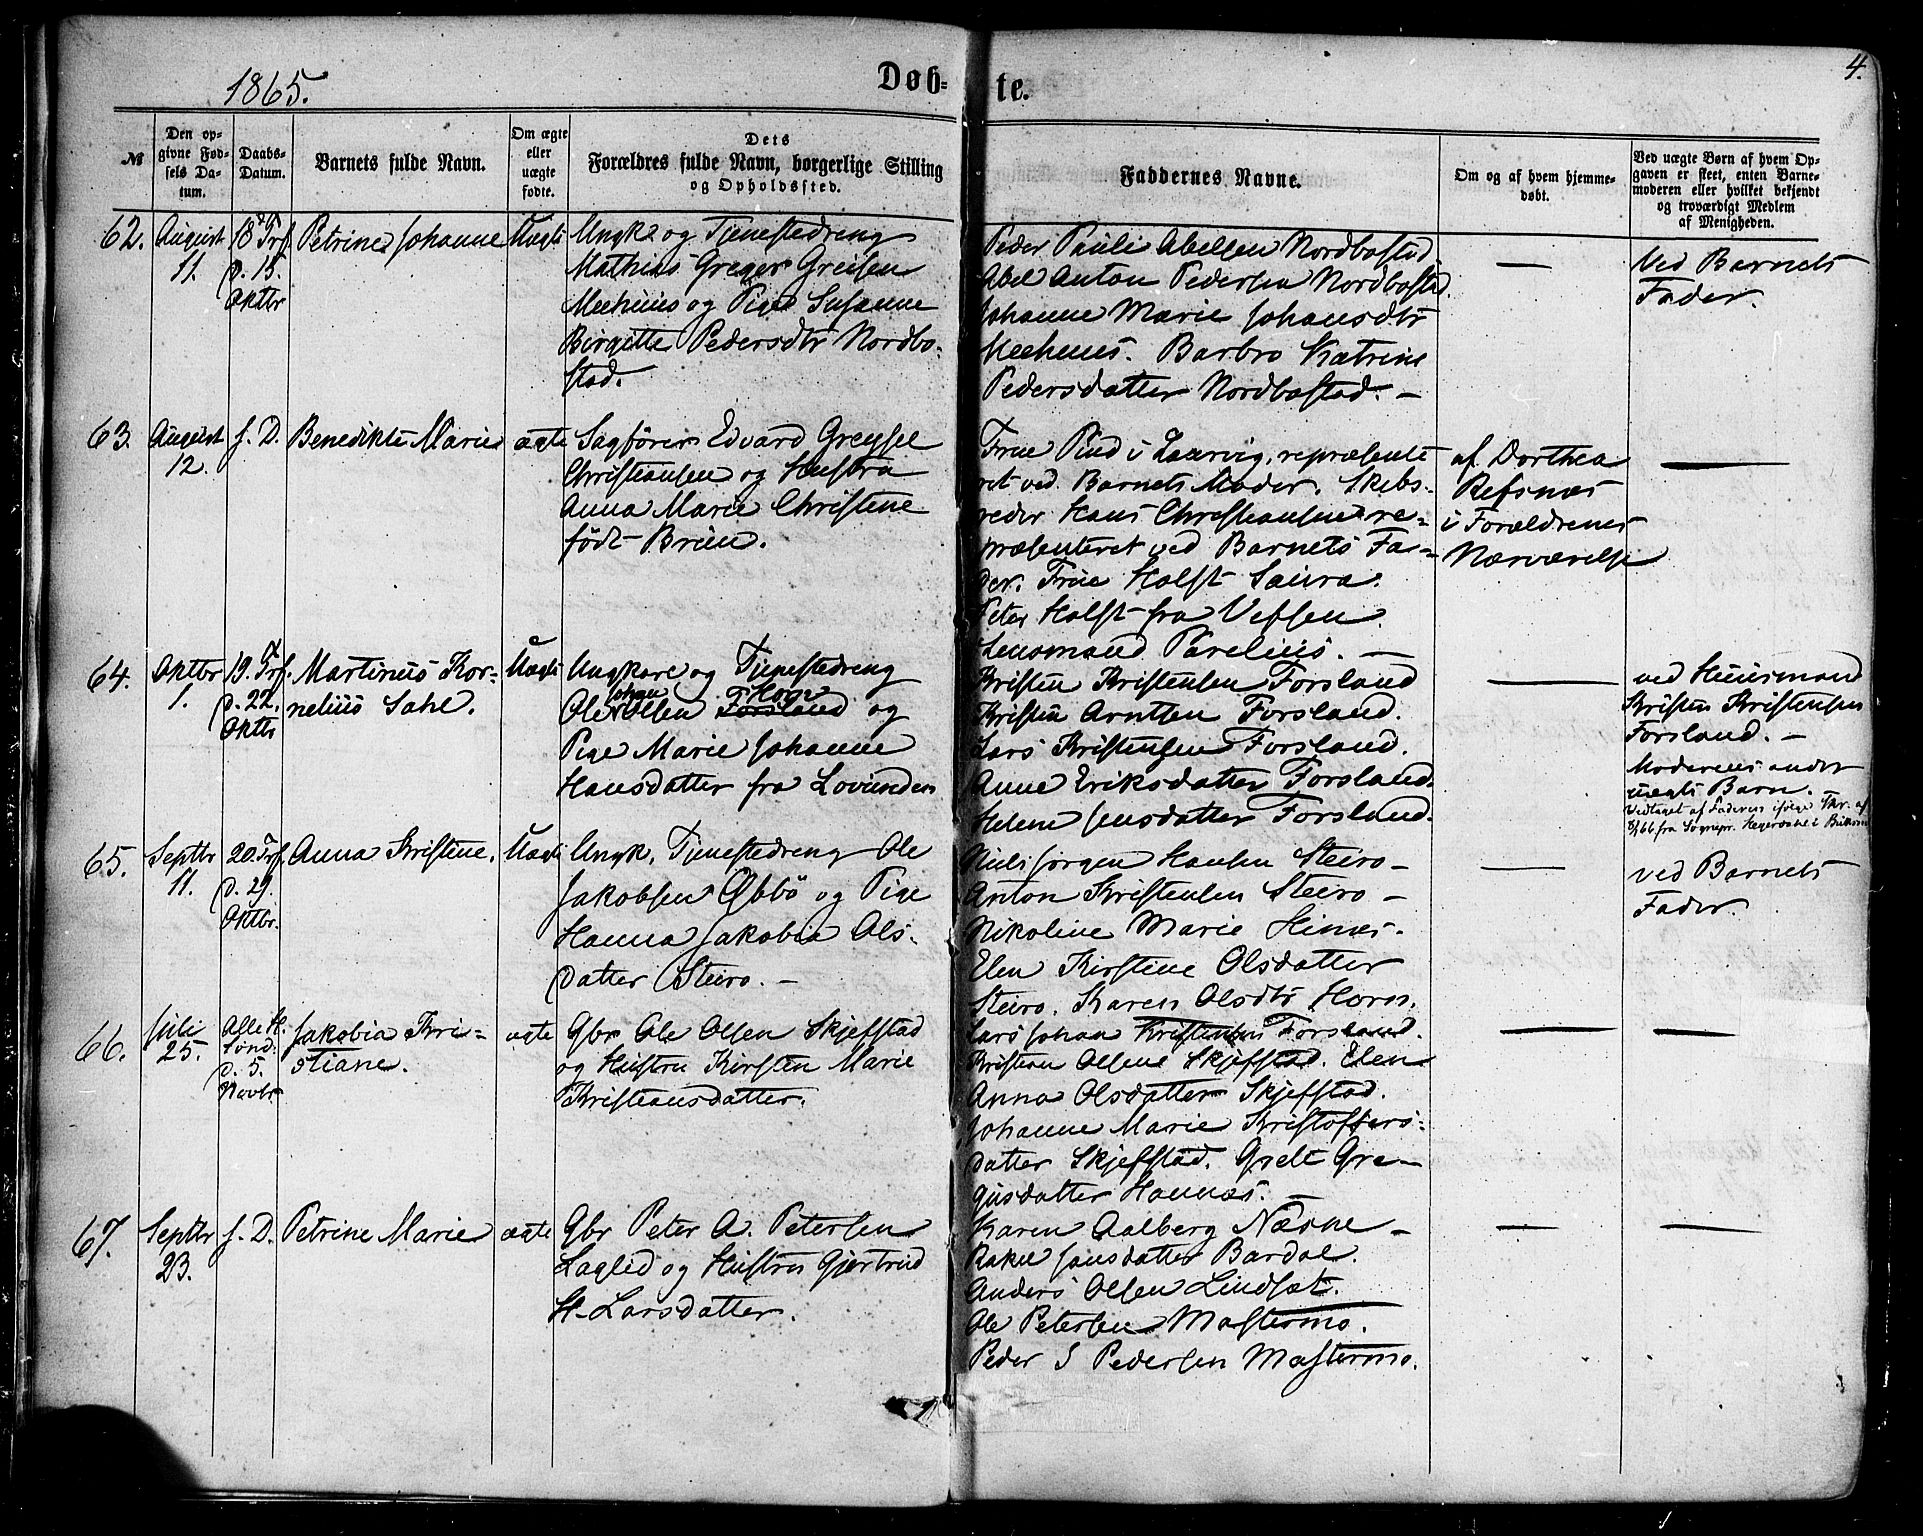 1865.
Døb-
te.
4.
№
Den op-
givne Fød-
sels Da-
tum.
Daabs-
Datum.
Barnets fulde Navn.
Om ægte
eller
uægte
fødte.
Dets
Forældres fulde Navn, borgerlige Stilling
og Opholdssted.
Faddernes Navne.
Om og af hvem hjemme-
døbt.
Ved uægte Børn af hvem Op-
gaven er skeet, enten Barne-
moderen eller hvilket bekjendt
og troværdigt Medlem
af Menigheden.
62.
August
11.
18 Trf.
d. 15.
Oktbr
Petrine Johanne
Uægte
Ungk. og Tjenestedreng
Mathias Greger Greisen
og Pige Susanne
Birgitte Pedersdtr Nordbo-
stad.
Peder Pauli Abelsen Nordbostad
Abel Anton Pedersen Nordbostad.
Johanne Marie Johansdtr
Barbro Katrine
Pedersdatter Nordbostad. —
Ved Barnets
Fader.
63.
August
12.
s. D.
Benedikte Marie
ægte
Sagfører Edvard Greysel
Christiansen og Hustru
Anna Marie Christine
født Brun.
Frue Pind i Laurvig, repræsente
ret ved Barnets Moder. Skibs-
reder Hans Christiansen re-
præsenteret ved Barnets Fa-
der. Frue Holst Saura.
Peter Holst fra Vefsen
Lensmand Parelius. —
af Dorthea
Refsnes
i Forældrenes
Nærværelse
64.
Oktbr
1.
19. Trf.
d. 22.
Oktbr
Martinus Kor-
nelius Sahl.
Uægte
Ungkare og Tjenestedreng
Johan Horn
Ole Olsen Forsland og
Pige Marie Johanne
Hansdatter fra Lovunden
Kristen Kristensen Forsland
Kristen Arntsen Forsland.
Lars Kristensen Forsland.
Anne Eriksdatter Forsland.
Helene Jensdatter Forsland.
ved Huusmand
Kristen Kristensen
Forsland. —
Moderens andet
uægte Barn.
Vedtaget af Faderen ifølge Skr. af
fra Sognepr.
65.
Septbr
11.
20. Trf.
d. 29.
Oktbr.
Anna Kristine.
Uægte
Ungk. Tjenestedreng Ole
Jakobsen Øbbø og Pige
Hanna Jakobia Ols-
datter Steiro. —
Niels Jørgen Hansen Steiro —
Anton Kristensen Steiro —
Nikoline Marie Himes.
Elen Kirstine Olsdatter
Steiro. Karen Olsdtr Horn.
ved Barnets
Fader.
66.
Juli
25.
Alle H.
Sønd:
d. 5.
Novbr
Jakobia Kri-
stiane.
ægte
Gbr Ole Olsen Skjefstad
og Hustru Kirsten Marie
Kristiansdatter.
Lars Johan Kristensen Forsland.
Kristian Olsen Skjefstad. Elen
Anna Olsdatter Skjefstad.
Johanne Marie Kristoffers-
datter Skjefstad. Grelt Gre-
gusdatter Hannæs. —
67.
Septbr
23.
s. D.
Petrine Marie
ægte
Gbr Peter A. Petersen
Laglid og Hustru Gjertrud
H. Larsdatter.
Karen Aalberg Næsne —
Rakel Jansdatter Bardal.
Anders Olsen Lindset.
Ole Petersen Mastermo.
Peder S Pedersen Mastermo.